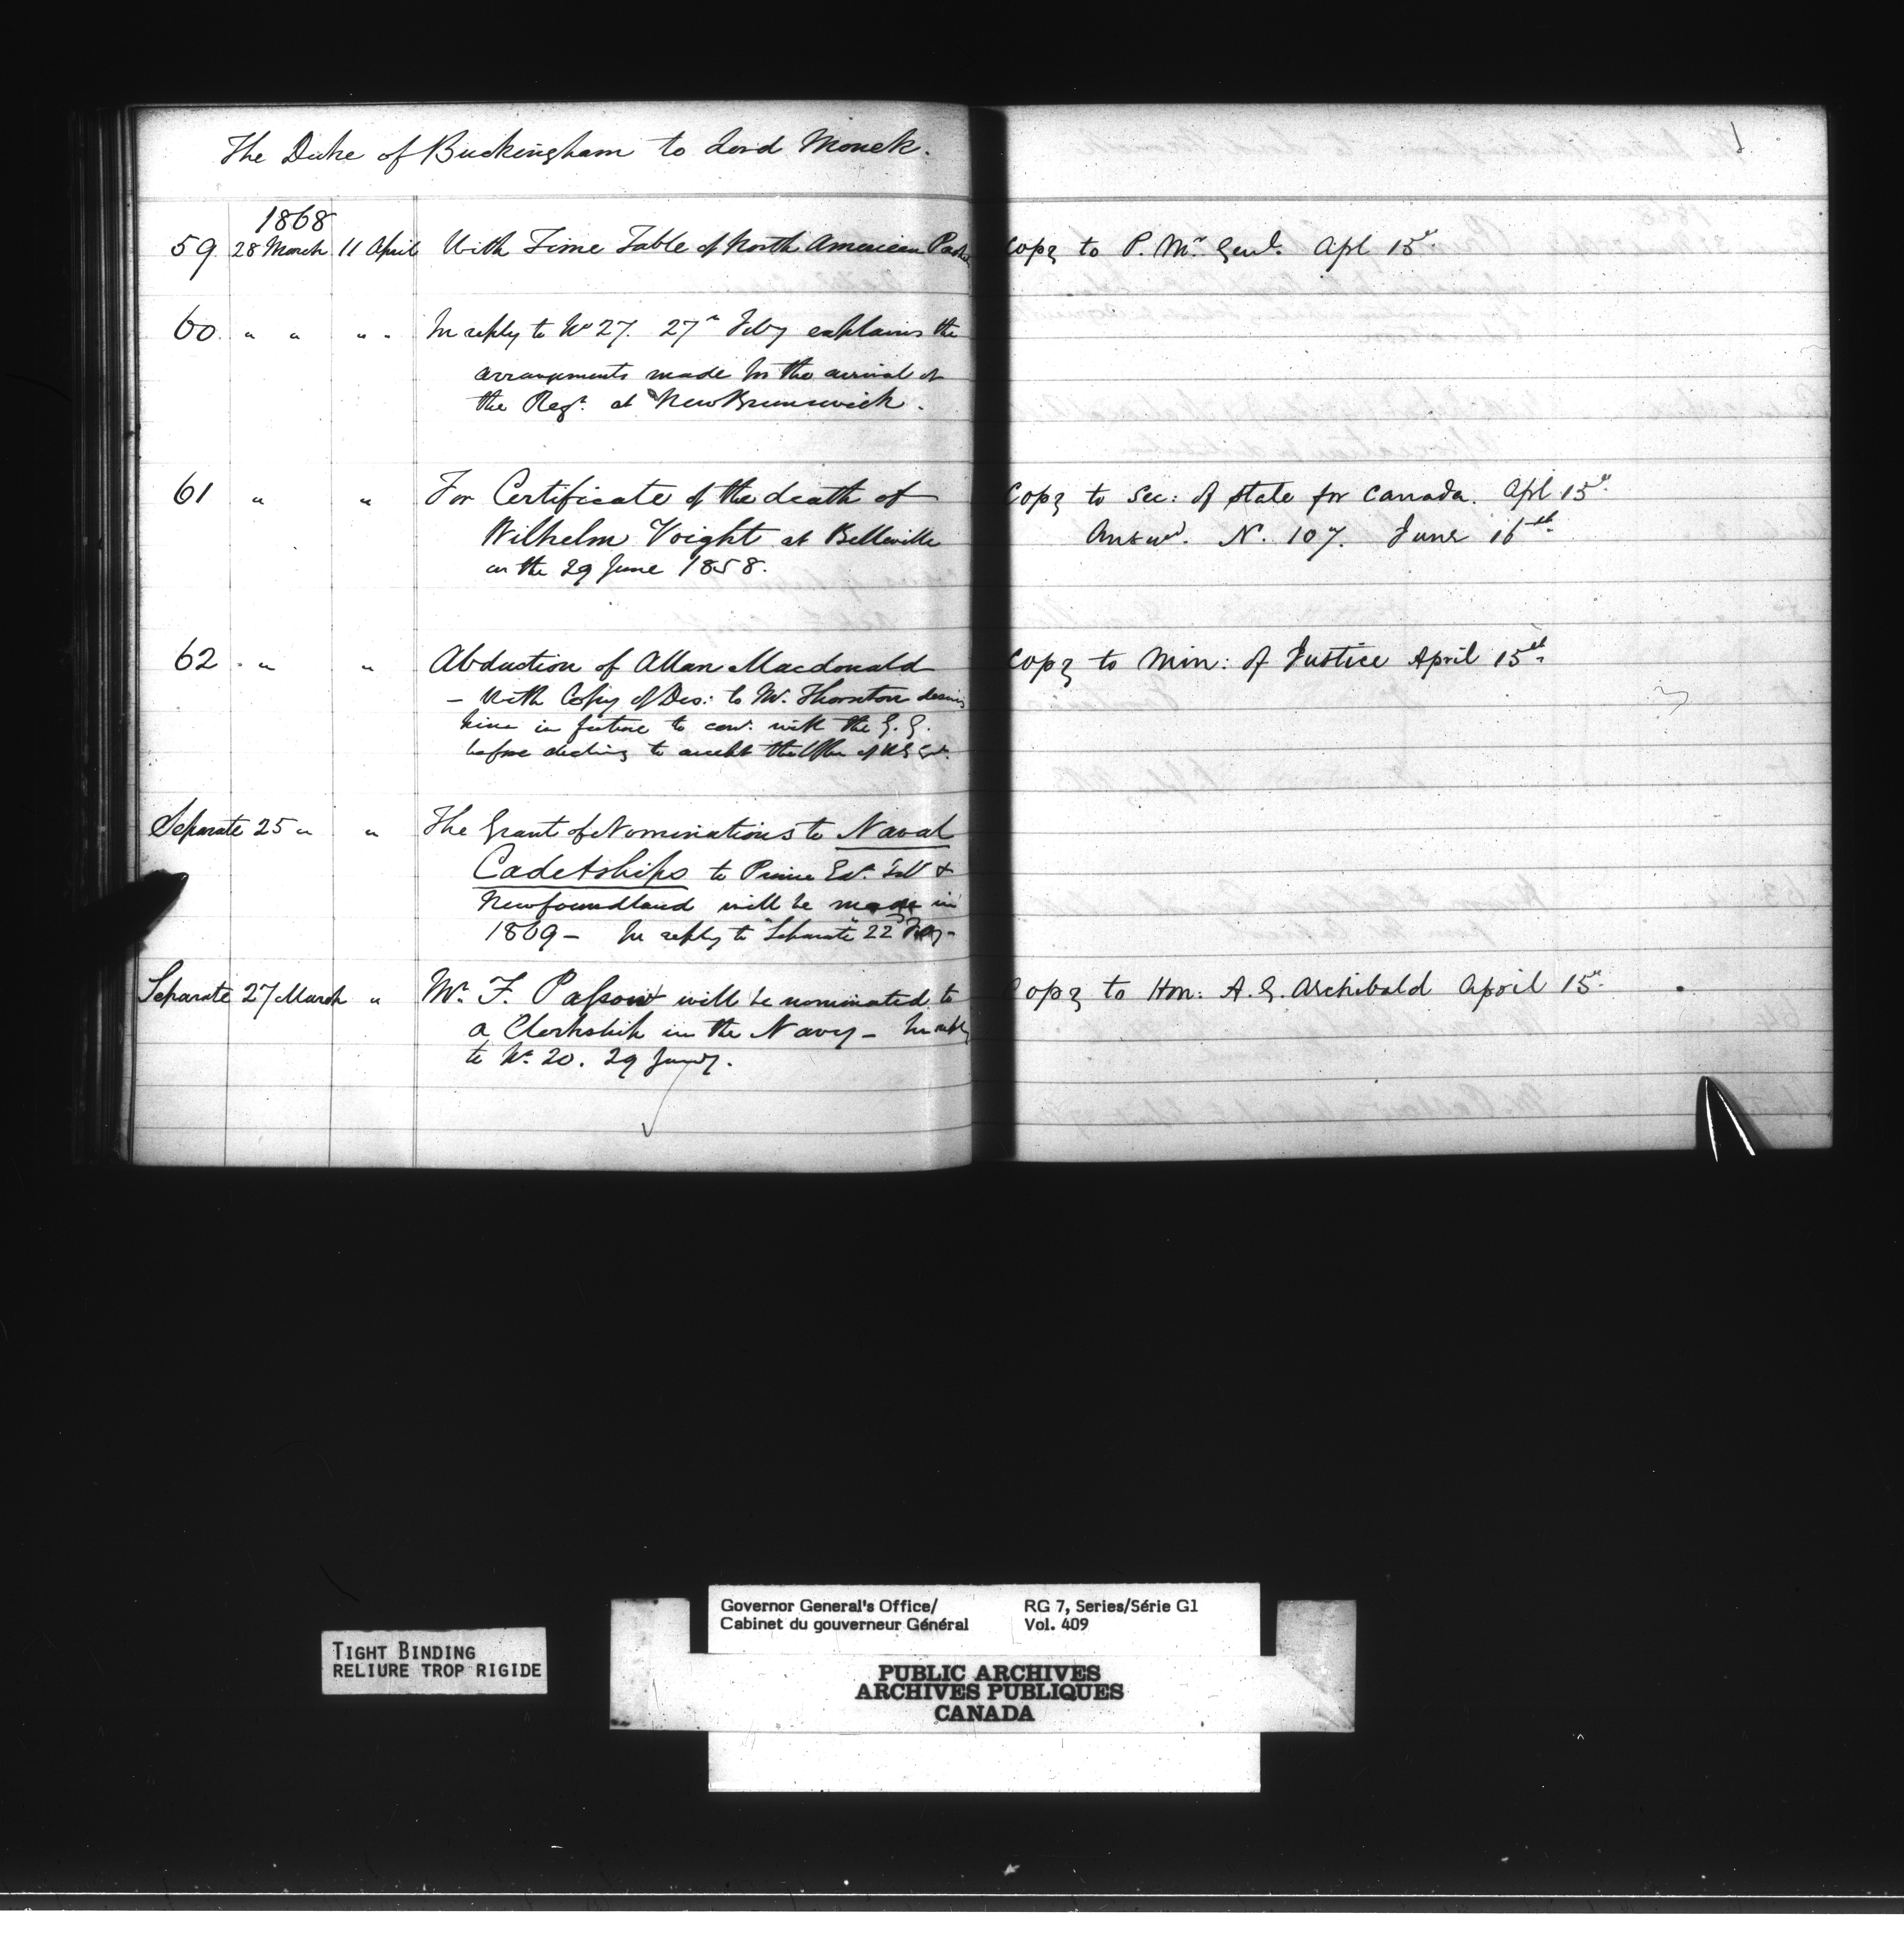 The Duke of Buckingham to Lord Monck.
1868
59 28 March 11 April With Time Table of North American Copy to P. Mr. Genl. Apl 15th
60 " " " " In reply to No 27. 27th Feby explains the
arrangements made for the arrival of
the Regt. at New Brunswick.
61 " " For Certificate of the death of Copy to Sec: of State for Canada. Apl 15th
Wilhelm Voight at Belleville Answd. N. 107. June 16th
on the 29 June 1858.
62 " " Abduction of Allan Macdonald Copy to Min: of Justice April 15th
— With Copy of Des: to Mr. Thornton desiring
him in future to con: with the G. G.
before declining to accept the Offer of US Govt.
Separate 25 " " The Grant of Nominations to Naval
Cadetships to Prince Ed. Isld &
Newfoundland will be made in
1869 — In reply to "Separate" 22 Feby —
Separate 27 March " Mr. F. Passow will be nominated to Copy to Hon: A. G. Archibald April 15th
a Clerkship in the Navy — In reply
to No. 20. 29 Jany.
Governor General's Office/ RG 7, Series/Série G1
Cabinet du gouverneur Général Vol. 409
TIGHT BINDING
RELIURE TROP RIGIDE
PUBLIC ARCHIVES
ARCHIVES PUBLIQUES
CANADA